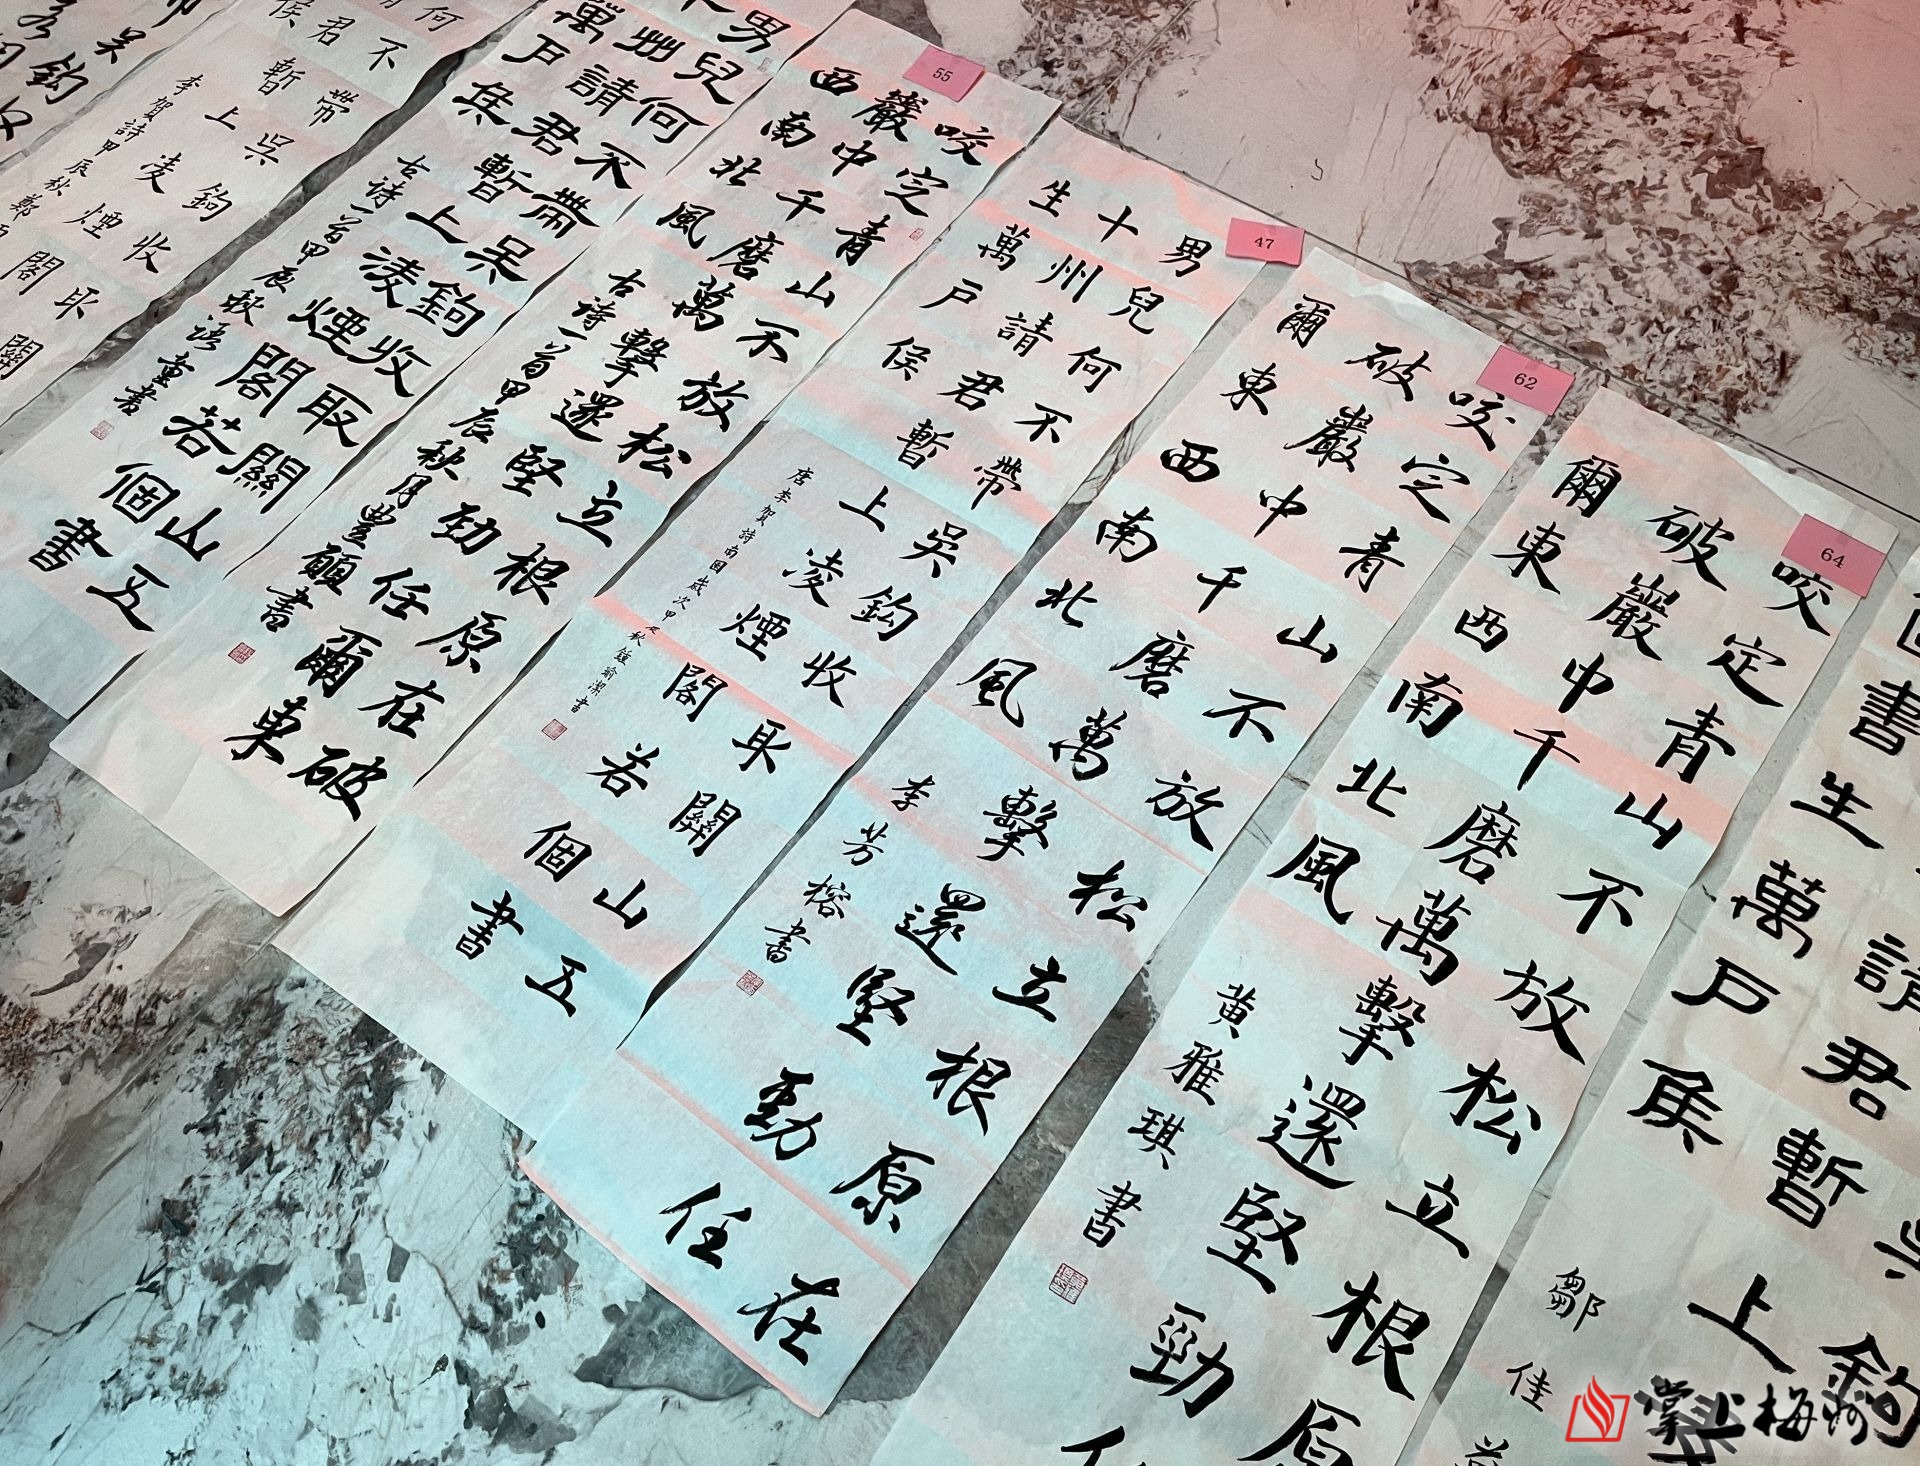 64
62
47
55
請君暫上
書生萬戶侯
鄒佳
咬定青山不放松立根原
破巖中千磨萬擊還堅勁任
爾東西南北風
黄雅琪書
咬定青山不放松立根原在
破巖中千磨萬擊還堅勁任
爾東西南北風
李芳榕書
男兒何不帶吳鉤收取關山五
十州請君暫上凌煙閣若個書
生萬戶侯
唐李賀詩南園歲次甲辰秋
咬定青山不放松立根原在破
巖中千磨萬擊還堅勁任爾東
西南北風
古诗一首甲辰秋月豊願書
男兒何不帶吳鉤收取關山五
州請君暫上凌煙閣若個書
萬戶侯
古诗一首甲辰秋語童書
何不帶吳鉤收取關
君暫上凌煙閣
侯
李賀詩甲辰秋鄭
吳鉤
掌上梅州